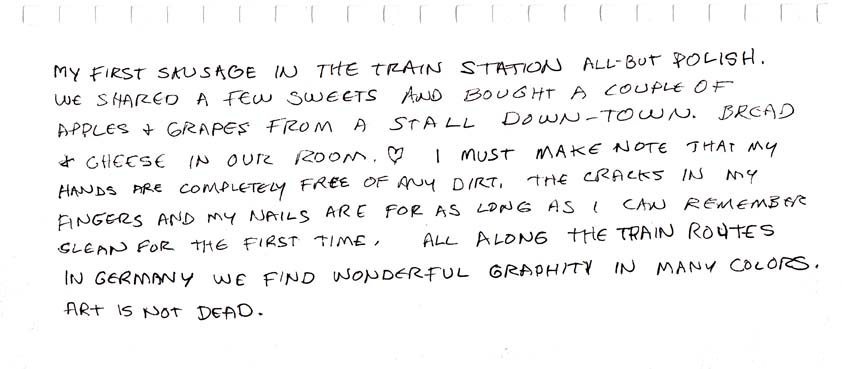 MY FIRST SAUSAGE IN THE TRAIN STATION ALL-BUT POLISH.
WE SHARED A FEW SWEETS AND BOUGHT A COUPLE OF
APPLES + GRAPES FROM A STALL DOWN-TOWN. BREAD
+ CHEESE IN OUR ROOM. ♡ I MUST MAKE NOTE THAT MY
HANDS ARE COMPLETELY FREE OF ANY DIRT. THE CRACKS IN MY
FINGERS AND MY NAILS ARE FOR AS LONG AS I CAN REMEMBER
CLEAN FOR THE FIRST TIME. ALL ALONG THE TRAIN ROUTES
IN GERMANY WE FIND WONDERFUL GRAPHITY IN MANY COLORS.
ART IS NOT DEAD.